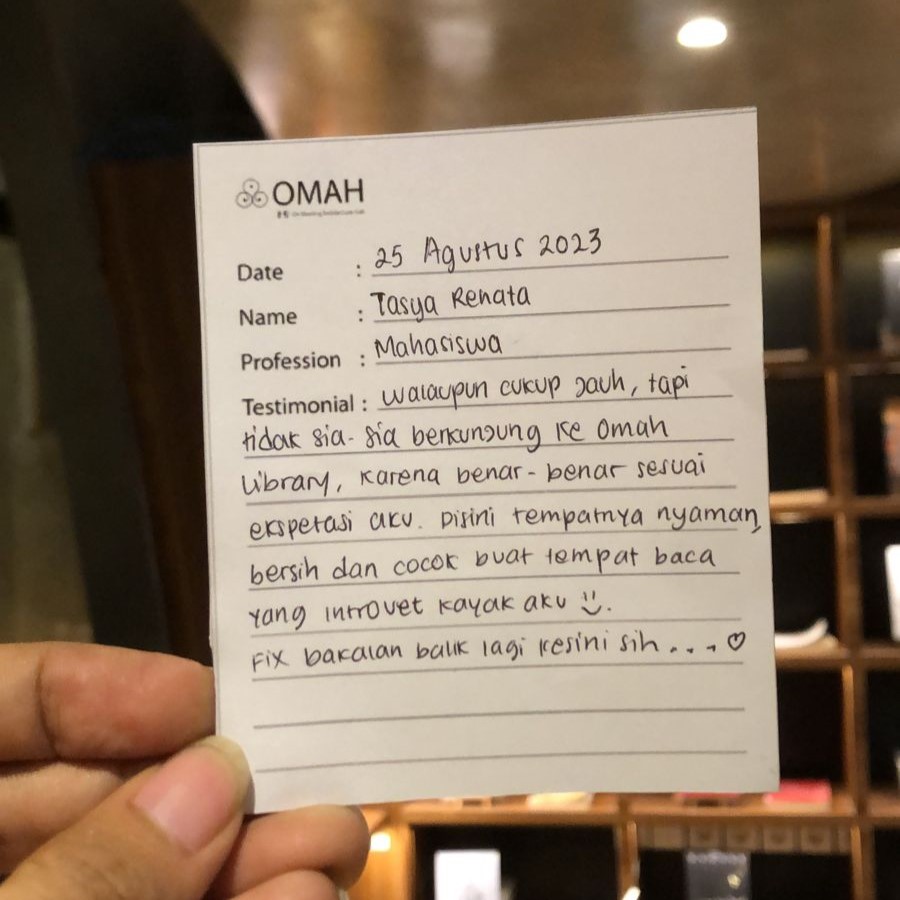 OMAH
Date : 25 Agustus 2023
Name : Tasya Renata
Profession : Mahasiswa
Testimonial : walaupun cukup jauh, tapi
tidak sia-sia berkunjung ke Omah
Library, karena benar-benar sesuai
ekspetasi aku. Disini tempatnya nyaman,
bersih dan cocok buat tempat baca
yang introvet kayak aku ü.
Fix bakalan balik lagi kesini sih.... ♡